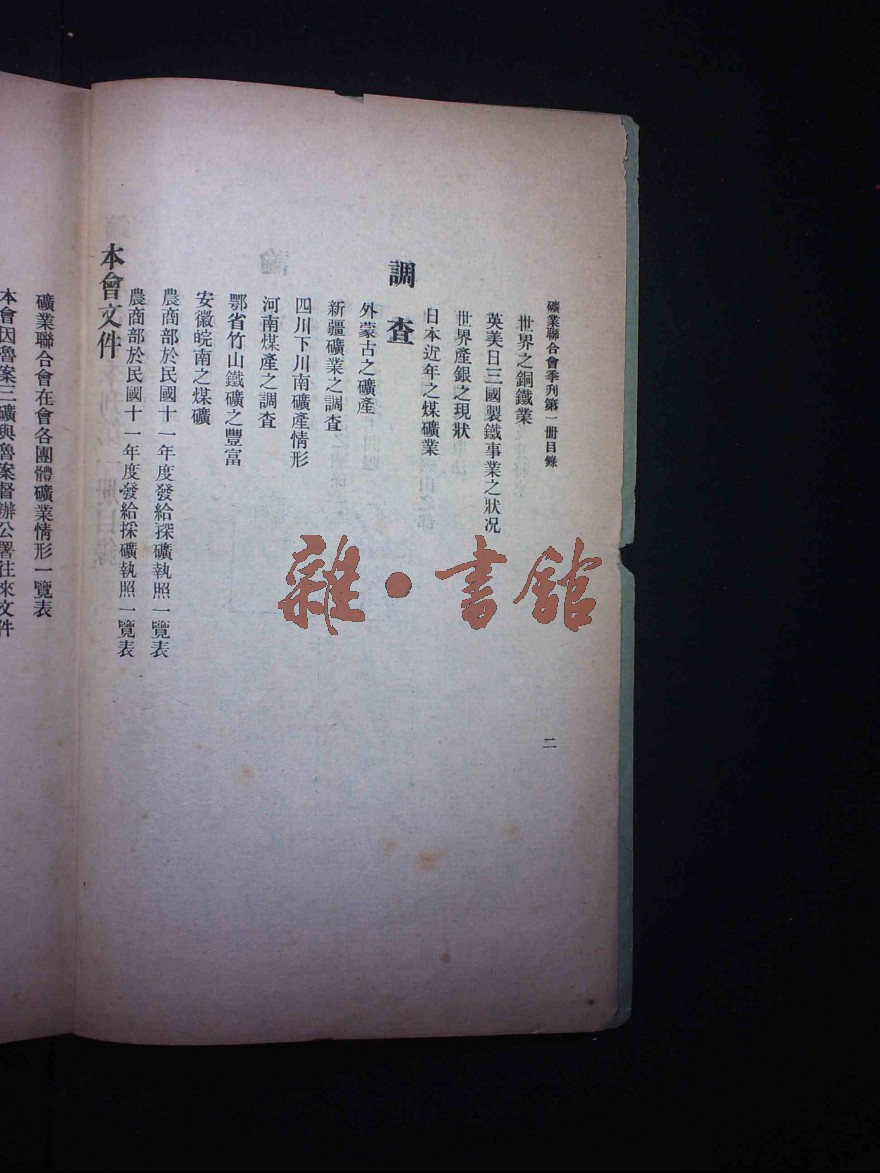 礦業聯合會季刊第一冊目錄
二
世界之銅鐵業
英美日三國製鐵事業之狀况
世界產銀之現狀
日本近年之煤礦業
調查
外蒙古之礦產
新疆礦業之調查
四川下川南礦產情形
河南煤產之調查
鄂省竹山鐵礦之豐富
安徽皖南之煤礦
農商部於民國十一年度發給探礦執照一覽表
農商部於民國十一年度發給採礦執照一覽表
本會文件
礦業聯合會在會各團體礦業情形一覽表
本會因魯案三礦與魯案督辦公署往來文件
雜·書館